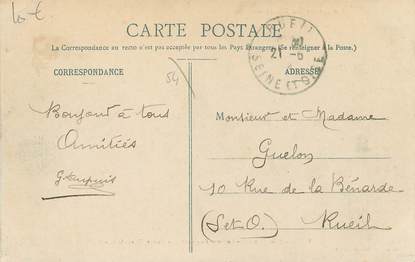 10 €
CARTE POSTALE
La Correspondance au recto n'est pas acceptée par tous les Pays étrangers. (Se renseigner à la Poste.)
RUEIL
21 -6
SEINE ET OISE
CORRESPONDANCE
ADRESSE
54
Bonjour à tous
Amitiés
G. Dupuis
Monsieur et Madame
Guelon
10 Rue de la Bénarde
(S et O.) Rueil